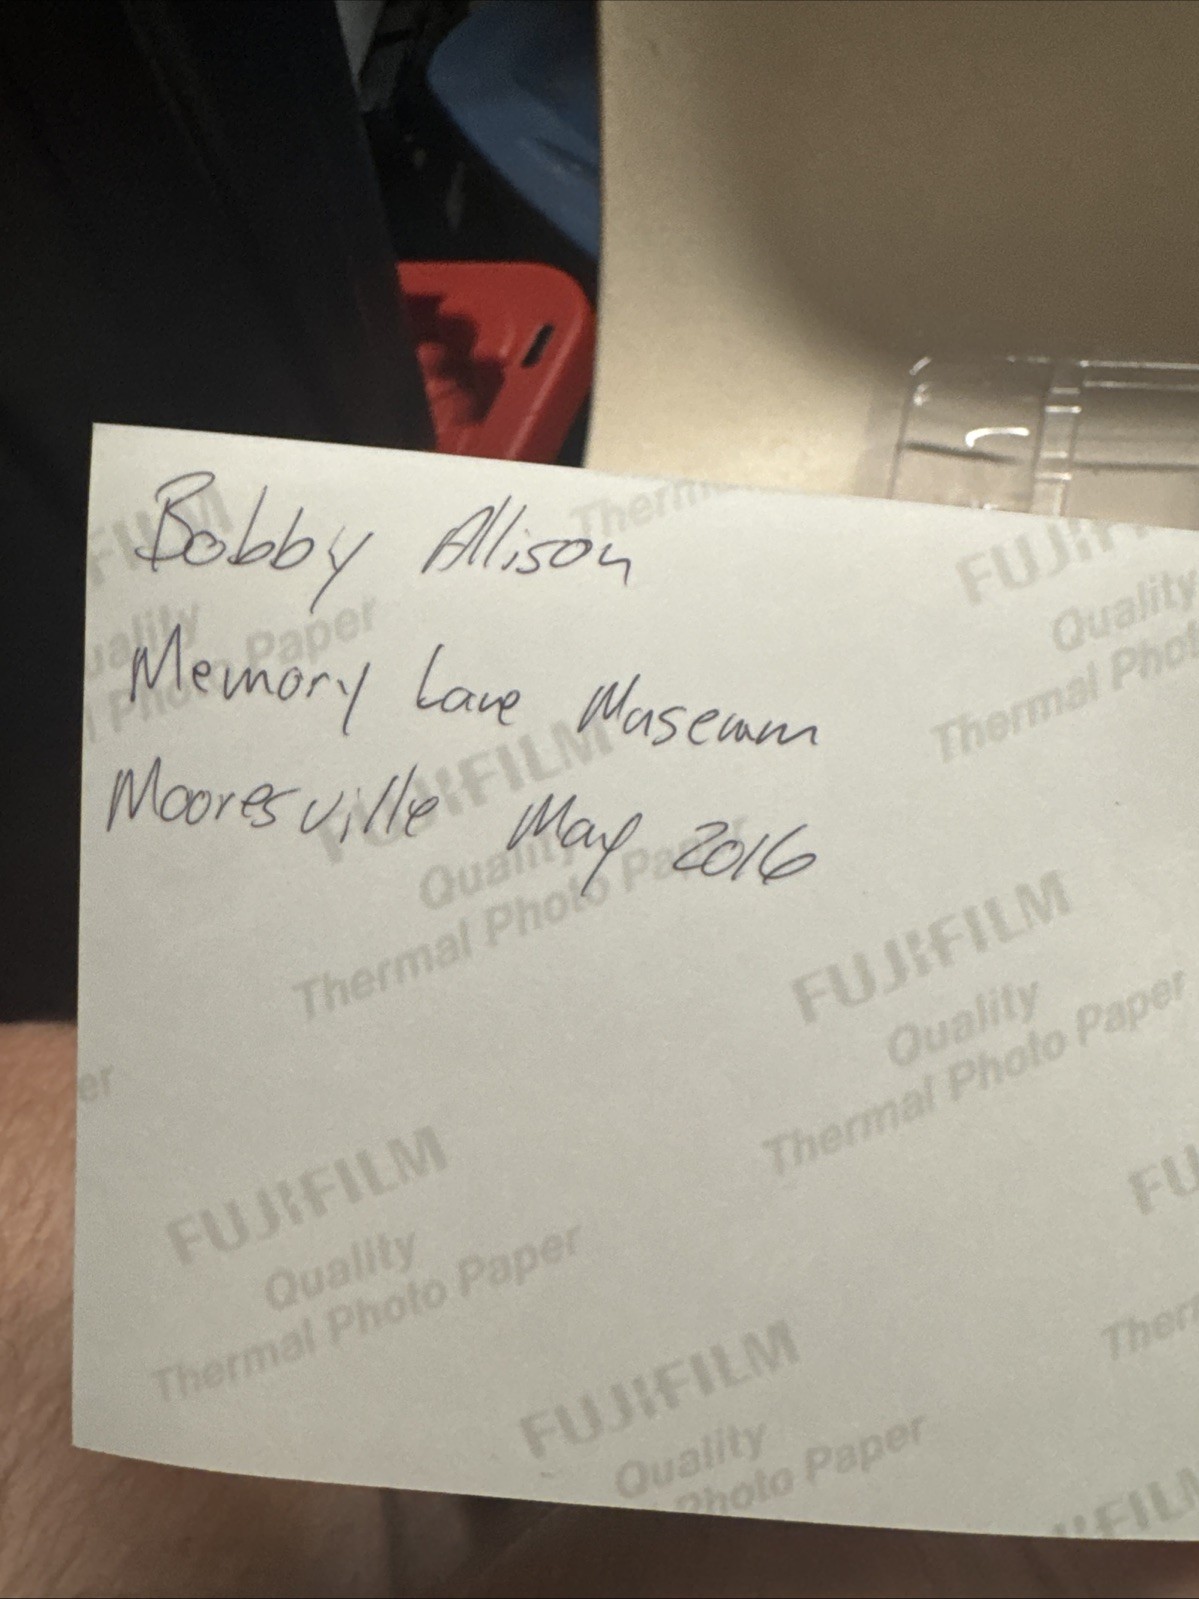 Bobby Allison
Memory Lane Museum
Mooresville May 2016
FUJIFILM
Quality
Thermal Photo Paper
FUJIFILM
Quality
Thermal Photo Paper
FUJIFILM
Quality
Thermal Photo Paper
FUJIFILM
Quality
Photo Paper